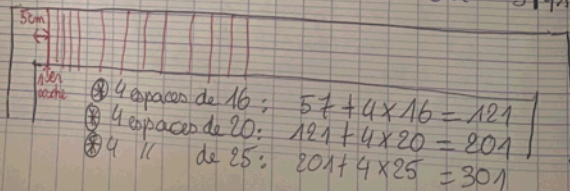 5cm
1er
caché
⊛ 4 espaces de 16 : 57 + 4 × 16 = 121
⊛ 4 espaces de 20 : 121 + 4 × 20 = 201
⊛ 4 " de 25 : 201 + 4 × 25 = 301